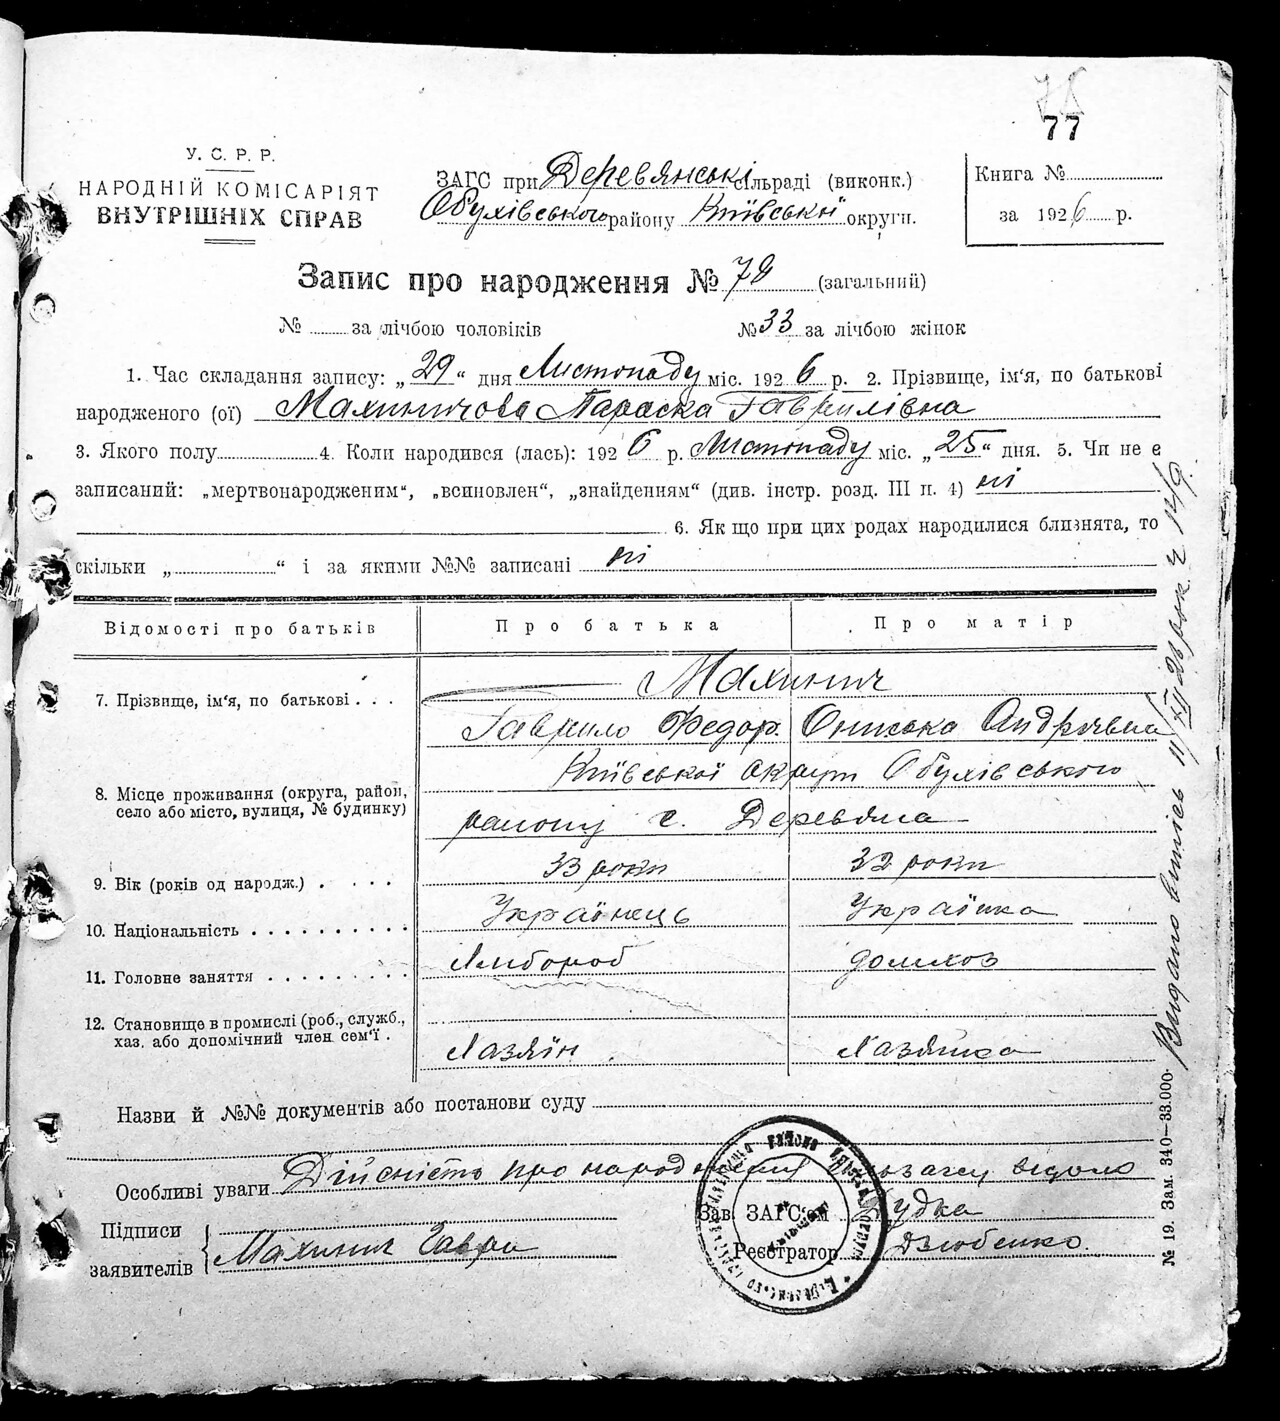 77
У. С. Р. Р.
НАРОДНІЙ КОМІСАРІЯТ
ВНУТРІШНІХ СПРАВ
ЗАГС при Деревянські сільраді (виконк.)
Обухівського району Київської округи.
Книга №
за 1926 р.
Запис про народження № 78 (загальний)
№ за лічбою чоловіків № 33 за лічбою жінок
1. Час складання запису: „29“ дня Листопаду міс. 1926 р. 2. Прізвище, ім'я, по батькові
народженого (ої) Махиничова Параска Гаврилівна
3. Якого полу 4. Коли народився (лась): 1926 р. Листопаду міс. „25“ дня. 5. Чи не є
записаний: „мертвонародженим“, „всиновлен“, „знайденням“ (див. інстр. розд. III п. 4) ні
6. Як що при цих родах народилися близнята, то
скільки „ “ і за якими №№ записані ні
Відомості про батьків Про батька Про матір
7. Прізвище, ім'я, по батькові . . . Махинич
Гаврило Федор. Ониська Андріївна
8. Місце проживання (округа, район, село або місто, вулиця, № будинку) Київської округи Обухівського
району с. Деревяна
9. Вік (років од народж.) . . . . 33 роки 32 роки
10. Національність . . . . . . . . . . Українець Українка
11. Головне заняття . . . . . . . . . Хлібороб домхоз
12. Становище в промислі (роб., служб., хаз. або допомічний член сем'ї . Хазяїн Хазяйка
Назви й №№ документів або постанови суду
Особливі уваги Дійсність про народження відомо
Підписи
заявителів Махинич Гаври
Зав. ЗАГС'ом Дудка
Реєстратор Дзюбенко.
№ 19. Зам. 340—33.000.
Видано витяг